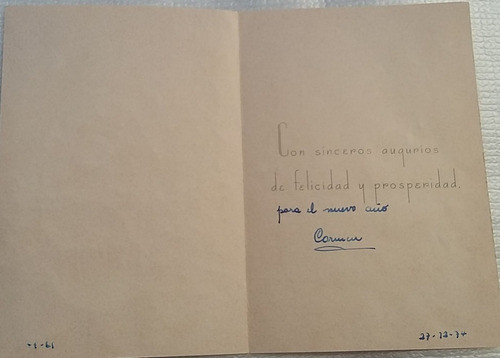 Con sinceros augurios
de felicidad y prosperidad,
para el nuevo año
Carmen